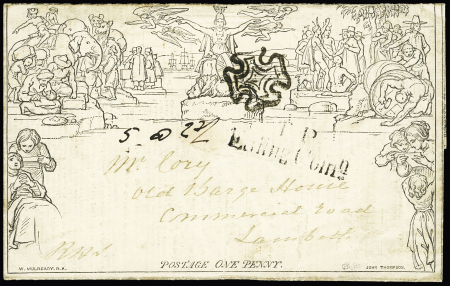 T P
Ealing Com
Mr. Cory
Old Barge House
Commercial Road
Lambeth
POSTAGE ONE PENNY.
W. MULREADY. R.A.
JOHN THOMPSON.